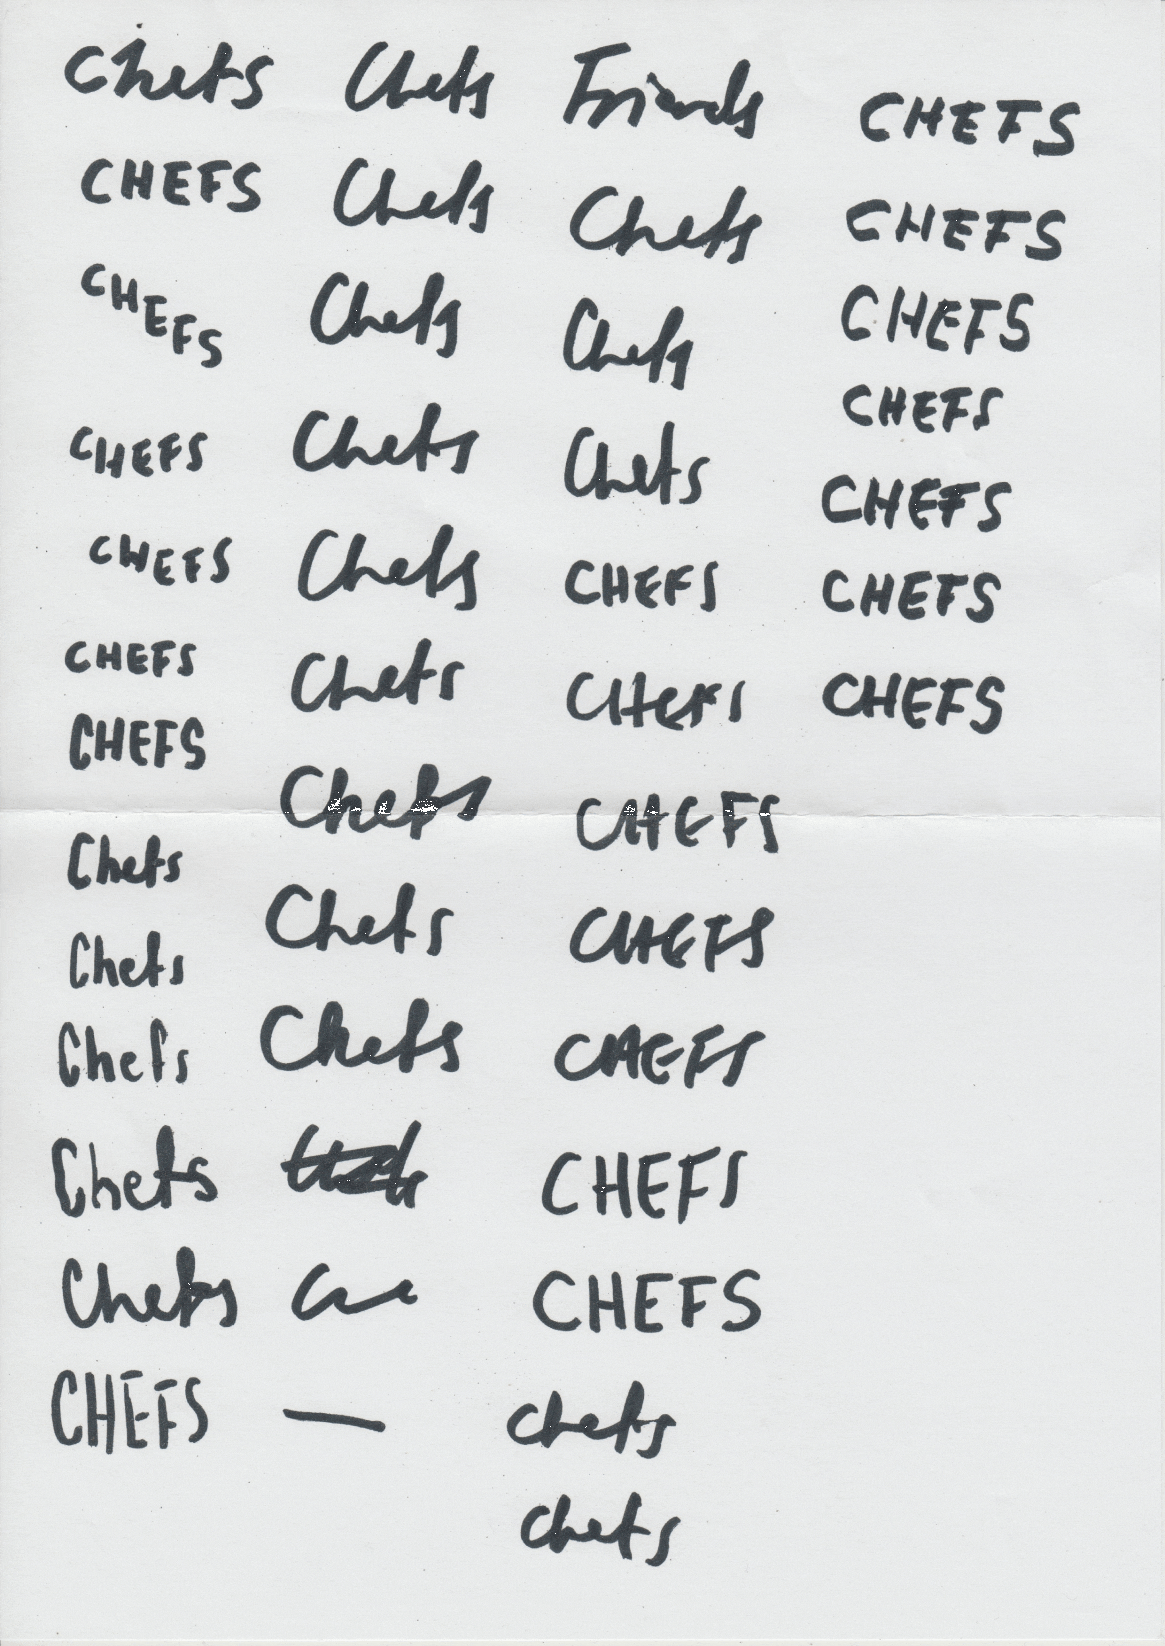 Chefs Chefs Friends CHEFS
CHEFS Chefs Chefs CHEFS
CHEFS Chefs Chefs CHEFS
CHEFS Chefs Chefs CHEFS
CHEFS Chefs CHEFS CHEFS
CHEFS Chefs CHEFS CHEFS
CHEFS Chefs CHEFS CHEFS
Chefs Chefs CHEFS
Chefs Chefs CHEFS
Chefs CHEFS
Chefs CHEFS
Chefs chefs
CHEFS chefs